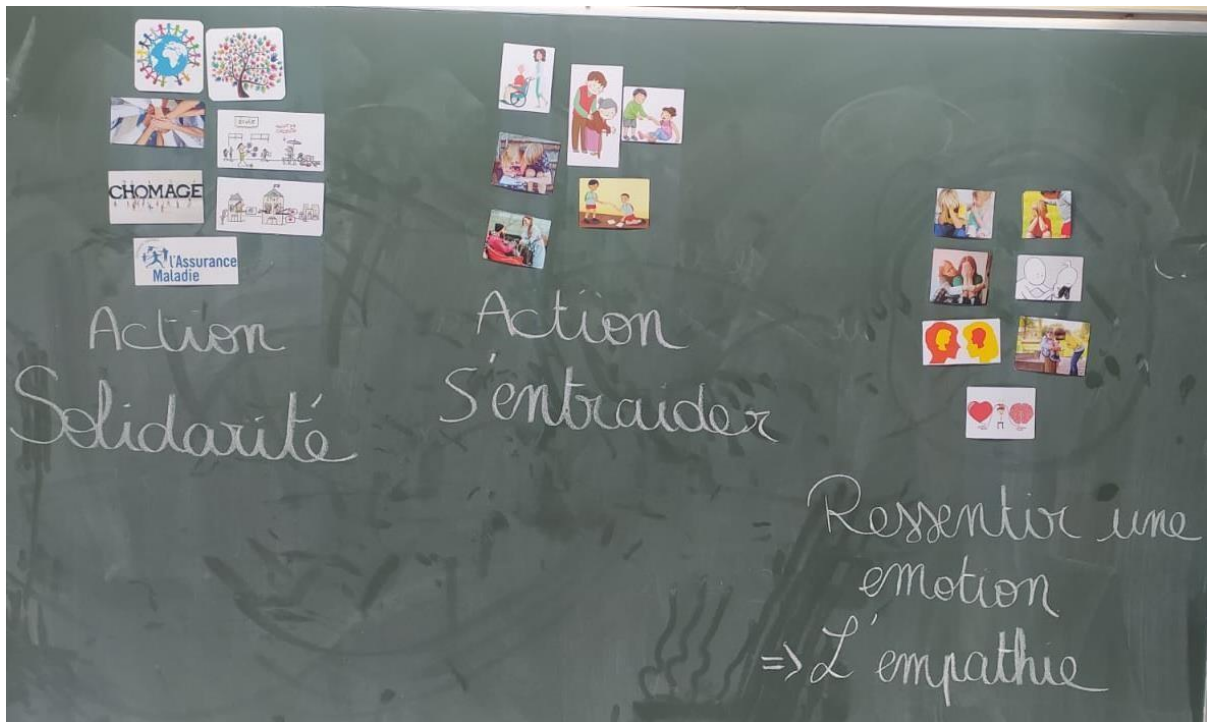 CHOMAGE
l'Assurance
Maladie
Action
Solidarité
Action
S'entraider
Ressentir une
emotion
=> L'empathie